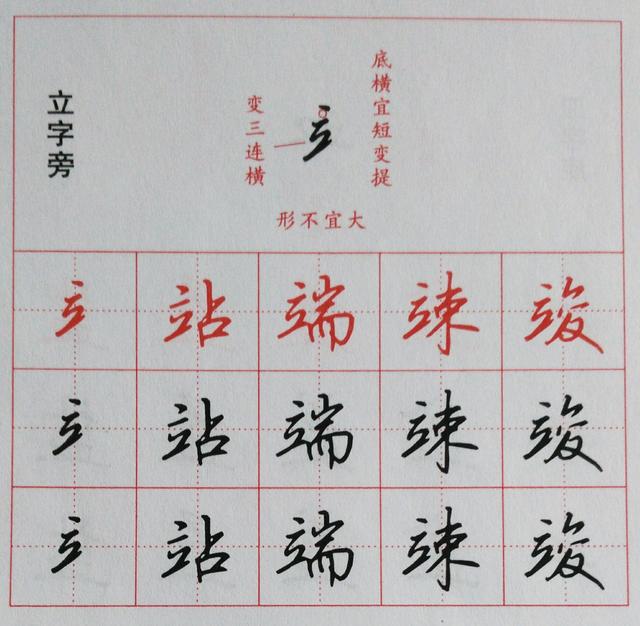 立字旁
变三连横
立
底横宜短变提
形不宜大
立 站 端 竦 竣
立 站 端 竦 竣
立 站 端 竦 竣